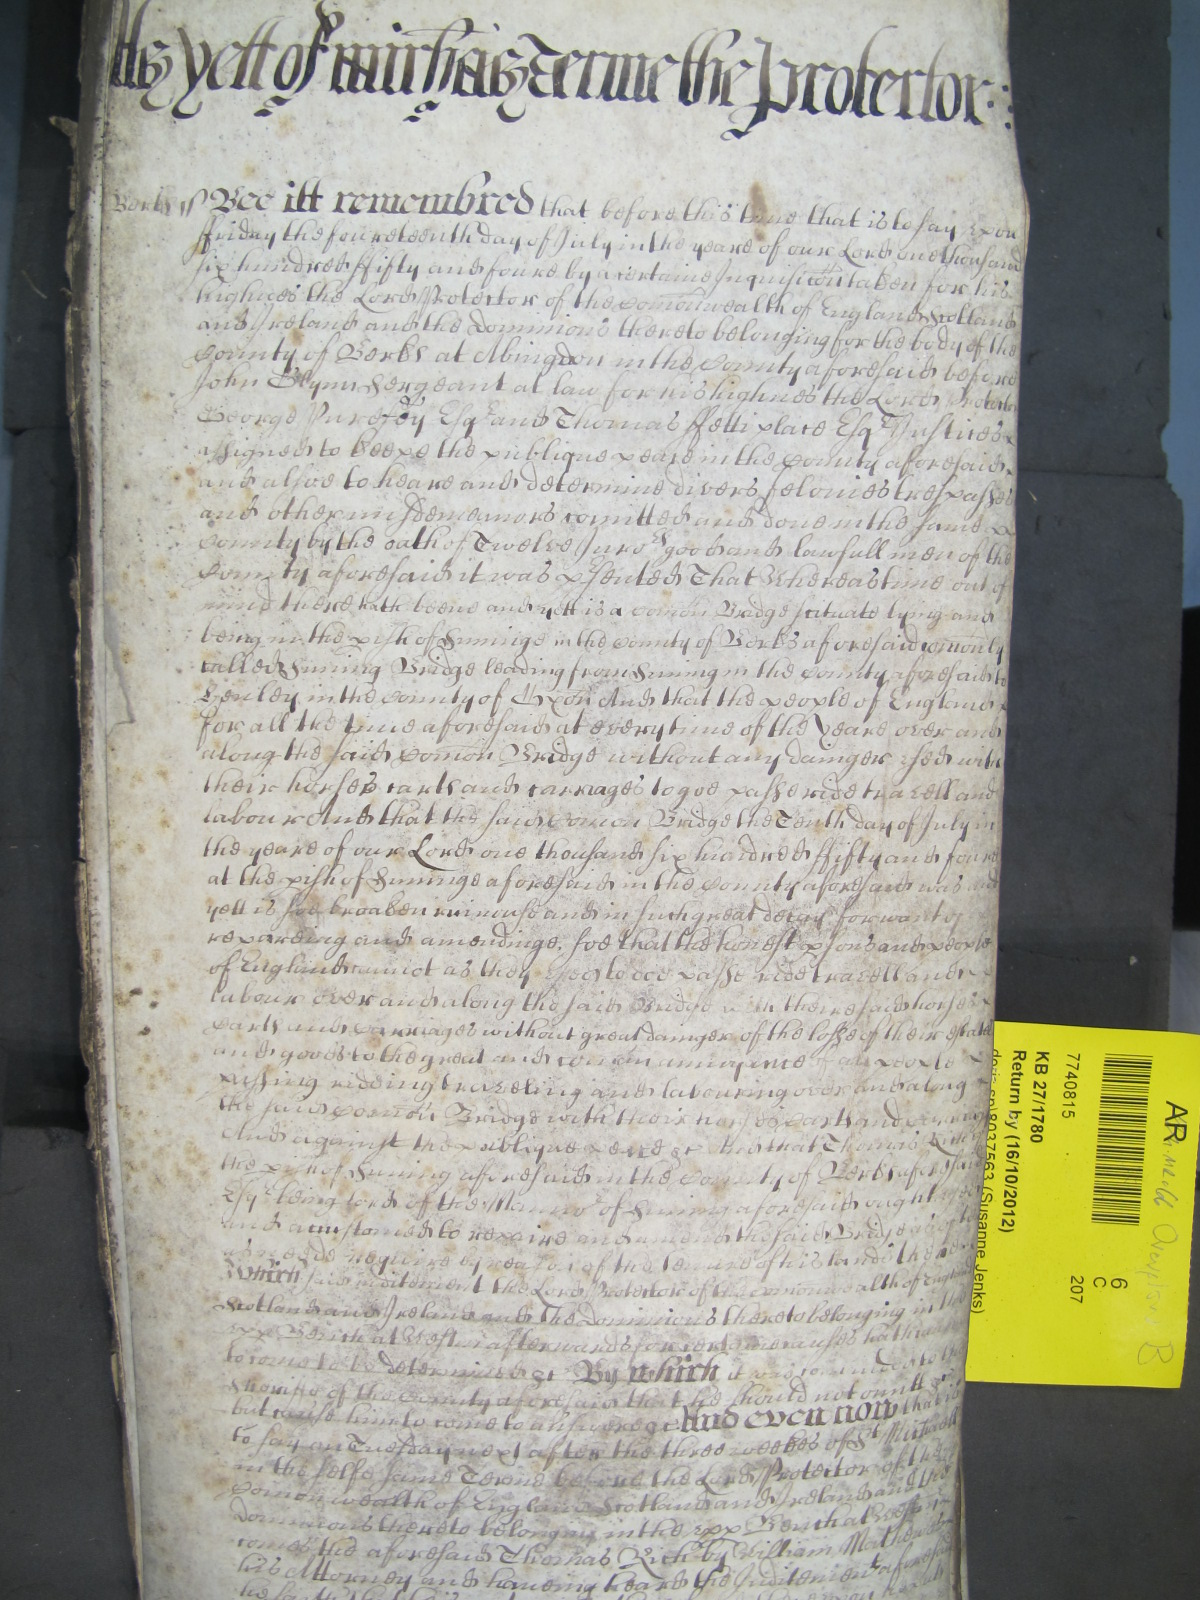 As yett of Michas Terme the Protector
Berks ss Bee itt remembred that before this time that is to say upon
ffriday the foureteenth day of July in the yeare of our Lord one thousand
six hundred ffifty and foure by a certaine Inquisicon taken for his
highnes the Lord Protector of the Comonwealth of England Scotland
and Ireland and the Dominions thereto belonging for the body of the
County of Berks at Abingdon in the County aforesaid before
John Glynn Sergeant at law for his highnes the Lord Protector
George Purefoy Esqr and Thomas ffettiplace Esqr Justices
assigned to keepe the publique peace in the County aforesaid
and alsoe to heare and determine divers felonies trespasses
and other misdemeanors comitted and done in the same
County by the oath of Twelve Juros good and lawfull men of the
County aforesaid it was psented That Whereas time out of
mind there hath beene and yett is a comon Bridge scituate lying and
being in the pish of Sunninge in the County of Berks aforesaid comonly
called Sunning Bridge leading from Sunning in the County aforesaid to
Henley in the County of Oxon And that the people of England
for all the time aforesaid at every time of the Yeare over and
along the said Comon Bridge without any dainger used with
their horses carts and carriages to goe passe ride travell and
labour And that the said Comon Bridge the Tenth day of July in
the yeare of our Lord one thousand six hundred ffifty and foure
at the pish of Sunninge aforesaid in the County aforesaid was and
yett is soe broaken ruinous and in such great decay for want of
repareing and amendinge, soe that the honest psons and people
of England cannot as they used to doe passe ride travell and
labour over and along the said Bridge with theire said horses
Carts and Carriages without great dainger of the losse of their estate
and goods to the great and comon annoyance of all people
passing ridding traveling and labouring over and along
the said Comon Bridge with their horses carts and carriages
And against the publique peace &c And that Thomas Rich of
the pish of Sunning aforesaid in the County of Berks aforesaid
Esqr being lord of the Mannor of Sunning aforesaid ought
and accustomed to repaire and amend the said Bridge as often
as neede require by reason of the tenure of his lands there
Which said inditement the Lord Protector of the Comonwealth of England
Scotland and Ireland and the Dominions thereto belonging in the
upp Bench at Westmr afterwards for certaine causes hath caused
to come to be determined &c By which it was comanded to the
Sheriffe of the County aforesaid that he should not omitt &c
but cause him to come to answere &c And even now that is
to say on Tuesday next after the three weekes of St Michaell
in the selfe same Terme before the Lord Protector of the
Comonwealth of England Scotland and Ireland and the
Dominions thereto belonging in the upp Bench at Westmr
comes the aforesaid Thomas Rich by William Mathewes
his Attorney and haveing heard the Inditement aforesaid
AR
6
C
207
7740815
KB 27/1780
Return by (16/10/2012)
8037563 (Susanne Jenks)